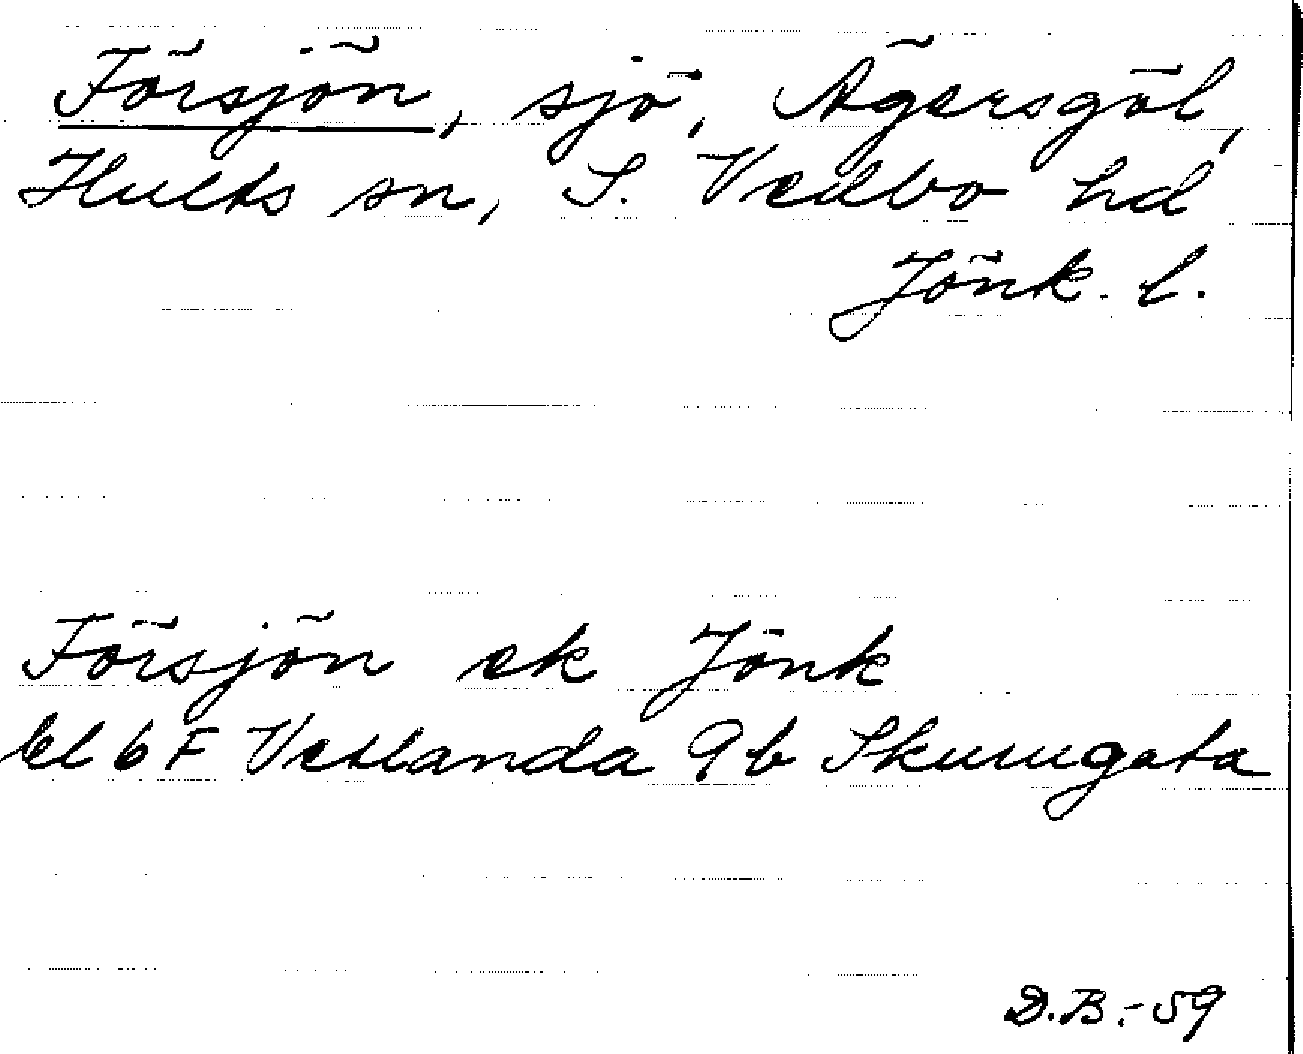 Försjön, sjö, Ägersgöl,
Hults sn, S. Vedbo hd
Jönk. l.
Försjön ek Jönk
bl 6 F Vetlanda 9b Skurugata
D.B.-59